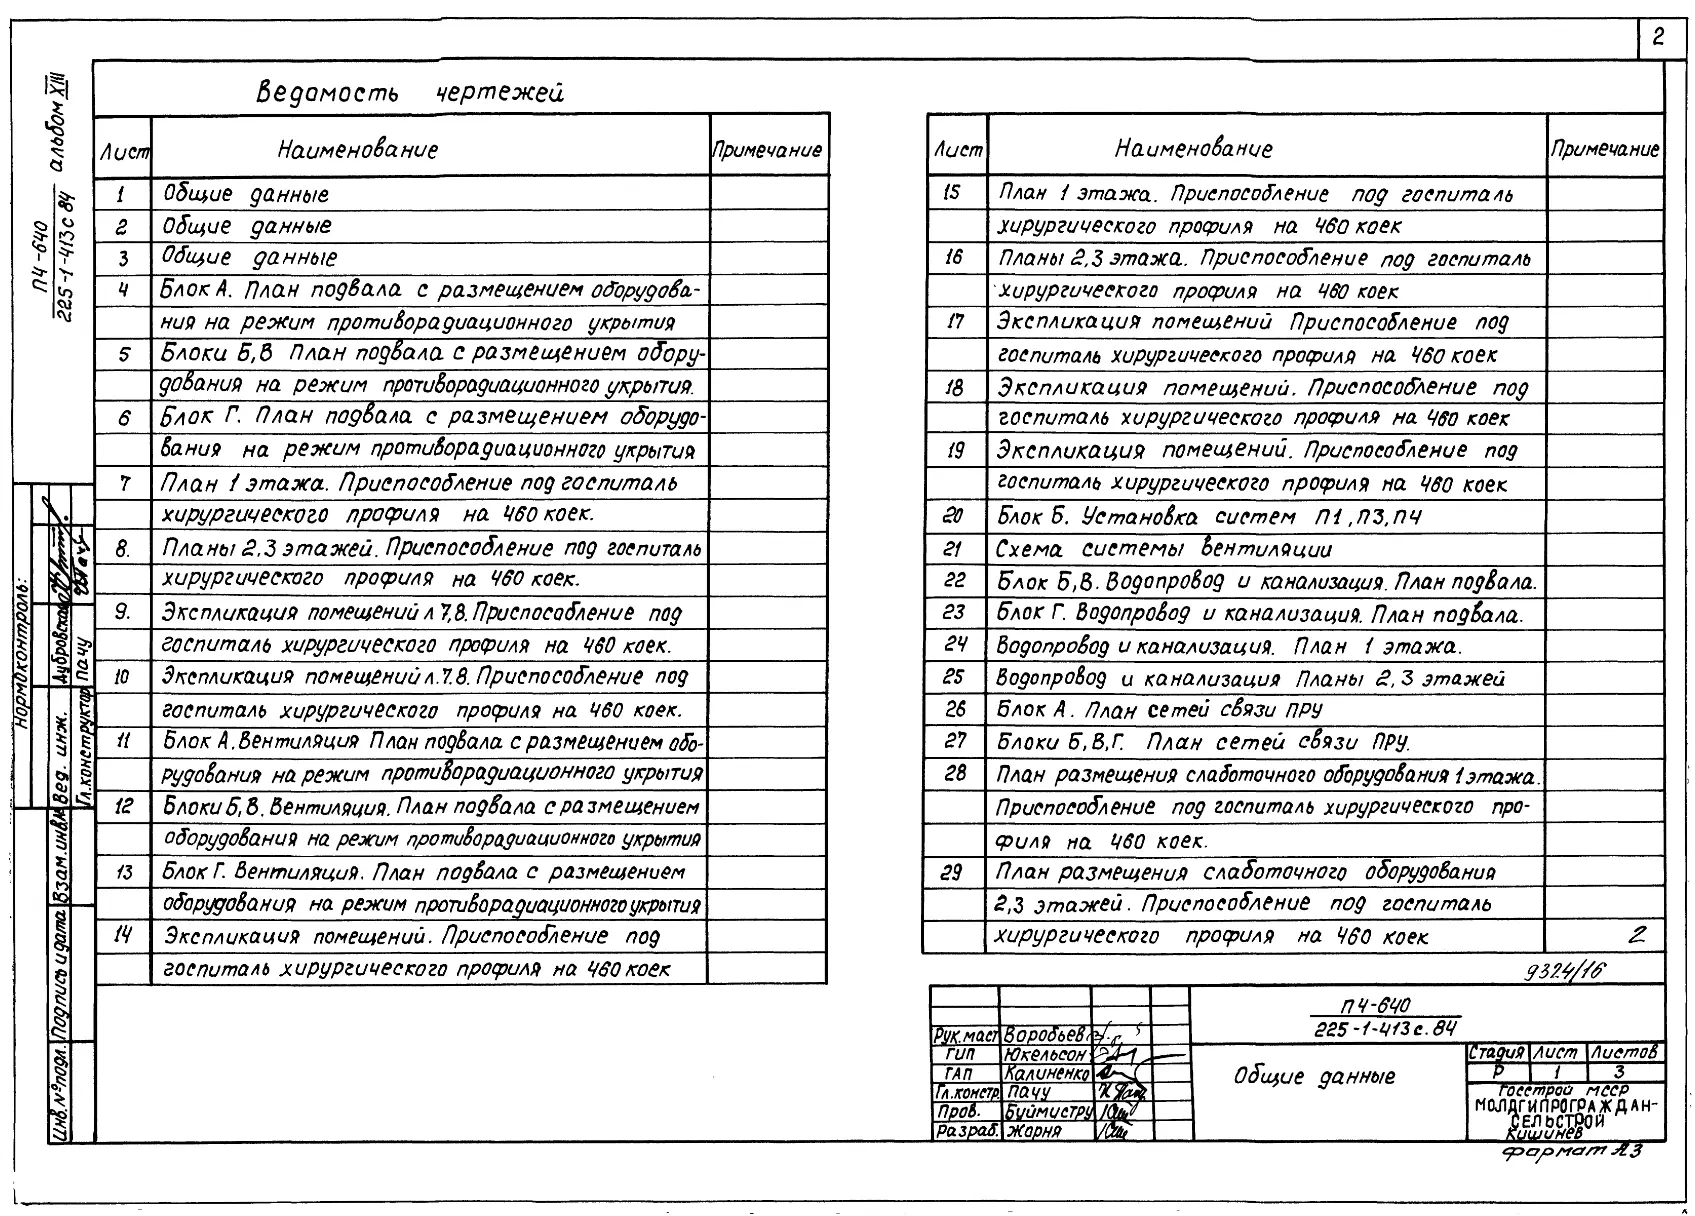 2
Ведомость чертежей
Лист Наименование Примечание
1 Общие данные
2 Общие данные
3 Общие данные
4 Блок А. План подвала с размещением оборудова-
ния на режим противорадиационного укрытия
5 Блоки Б,В План подвала с размещением обору-
дования на режим противорадиационного укрытия.
6 Блок Г. План подвала с размещением оборудо-
вания на режим противорадиационного укрытия
7 План 1 этажа. Приспособление под госпиталь
хирургического профиля на 460 коек.
8. Планы 2,3 этажей. Приспособление под госпиталь
хирургического профиля на 460 коек.
9. Экспликация помещений л 7,8. Приспособление под
госпиталь хирургического профиля на 460 коек.
10 Экспликация помещений л.7.8. Приспособление под
госпиталь хирургического профиля на 460 коек.
11 Блок А. Вентиляция План подвала с размещением обо-
рудования на режим противорадиационного укрытия
12 Блоки Б,В. Вентиляция. План подвала с размещением
оборудования на режим противорадиационного укрытия
13 Блок Г. Вентиляция. План подвала с размещением
оборудования на режим противорадиационного укрытия
14 Экспликация помещений. Приспособление под
госпиталь хирургического профиля на 460 коек
Лист Наименование Примечание
15 План 1 этажа. Приспособление под госпиталь
хирургического профиля на 460 коек
16 Планы 2,3 этажа. Приспособление под госпиталь
хирургического профиля на 460 коек
17 Экспликация помещений Приспособление под
госпиталь хирургического профиля на 460 коек
18 Экспликация помещений. Приспособление под
госпиталь хирургического профиля на 460 коек
19 Экспликация помещений. Приспособление под
госпиталь хирургического профиля на 460 коек
20 Блок Б. Установка систем П1,П3,П4
21 Схема системы вентиляции
22 Блок Б,В. Водопровод и канализация. План подвала.
23 Блок Г. Водопровод и канализация. План подвала.
24 Водопровод и канализация. План 1 этажа.
25 Водопровод и канализация Планы 2,3 этажей
26 Блок А. План сетей связи ПРУ
27 Блоки Б,В,Г. План сетей связи ПРУ.
28 План размещения слаботочного оборудования 1 этажа.
Приспособление под госпиталь хирургического про-
филя на 460 коек.
29 План размещения слаботочного оборудования
2,3 этажей. Приспособление под госпиталь
хирургического профиля на 460 коек 2
9324/16
П4-640
225-1-413с.84
Рук.маст Воробьев
ГИП Юкельсон
ГАП Калиненко
Гл.констр. Пачу
Пров. Буймистру
Разраб. Жорня
Общие данные
Стадия Лист Листов
Р 1 3
Госстрой МССР
МОЛДГИПРОГРАЖДАН-
СЕЛЬСТРОЙ
Кишинев
формат А3
П4-640
225-1-413с 84
альбом XIII
Нормоконтроль:
Вед. инж. Дубровская
Гл.конструктор Пачу
Взам.инв.№
Подпись и дата
Инв.№ подл.